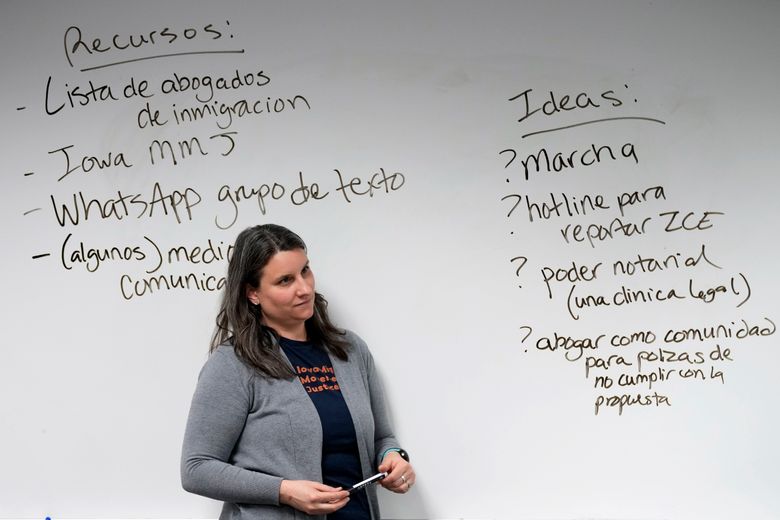 Recursos:
- Lista de abogados
de inmigracion
- Iowa MMJ
- WhatsApp grupo de texto
- (algunos) medio
comunica
Ideas:
? Marcha
? hotline para
reportar ICE
? poder notarial
(una clinica legal)
? abogar como comunidad
para polzas de
no cumplir con la
propuesta
Iowa Mi
Moveme
Justice